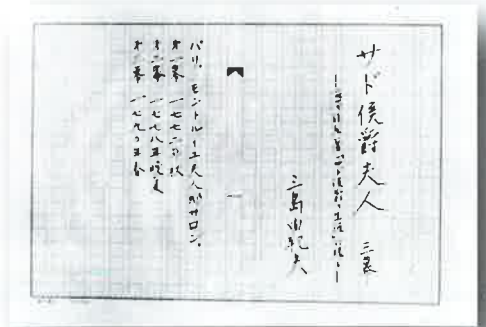 サド侯爵夫人 三幕
三島由紀夫
パリ。モントルイユ夫人邸サロン。
第一幕 一七七二年秋
第二幕 一七七八年晩夏
第三幕 一七九〇年春